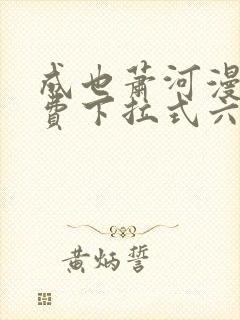 成也萧河漫
费下拉式六
黄炳誓